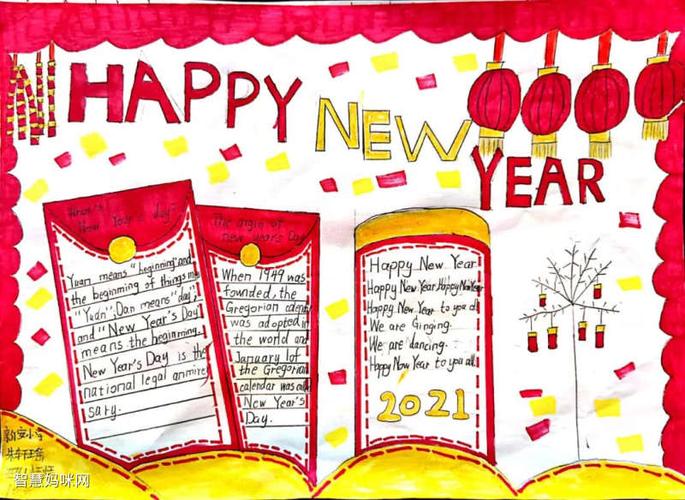 HAPPY
NEW
YEAR
New Year's day
The origin of
new year's Day
Yuan means "beginning" and
the beginning of things in
"Yuan"; Dan means "day";
and "New Year's Day
means the beginning.
New Year's Day is the
national legal annive
sary.
When 1949 was
founded, the
Gregorian
was adopted in
the world and
January 1of
the Gregorian
calendar was
New Year's
Day.
Happy New Year
Happy New Year Happy New Year
Happy New Year to you all
We are Ginging.
We are dancing.
Happy New Year to you all.
2021
智慧妈咪网